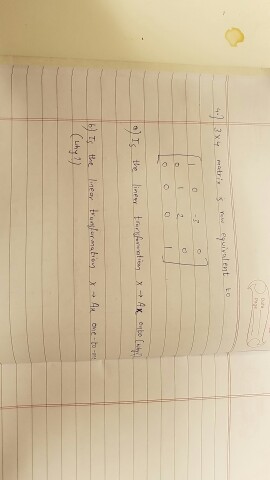 4) 3x4 matrix is row equivalent to
1 0 2 0
0 1 2 0
0 0 0 1
a) Is the linear transformation x → Ax, onto (why)
b) Is the linear transformation x → Ax one-to-
(why?)